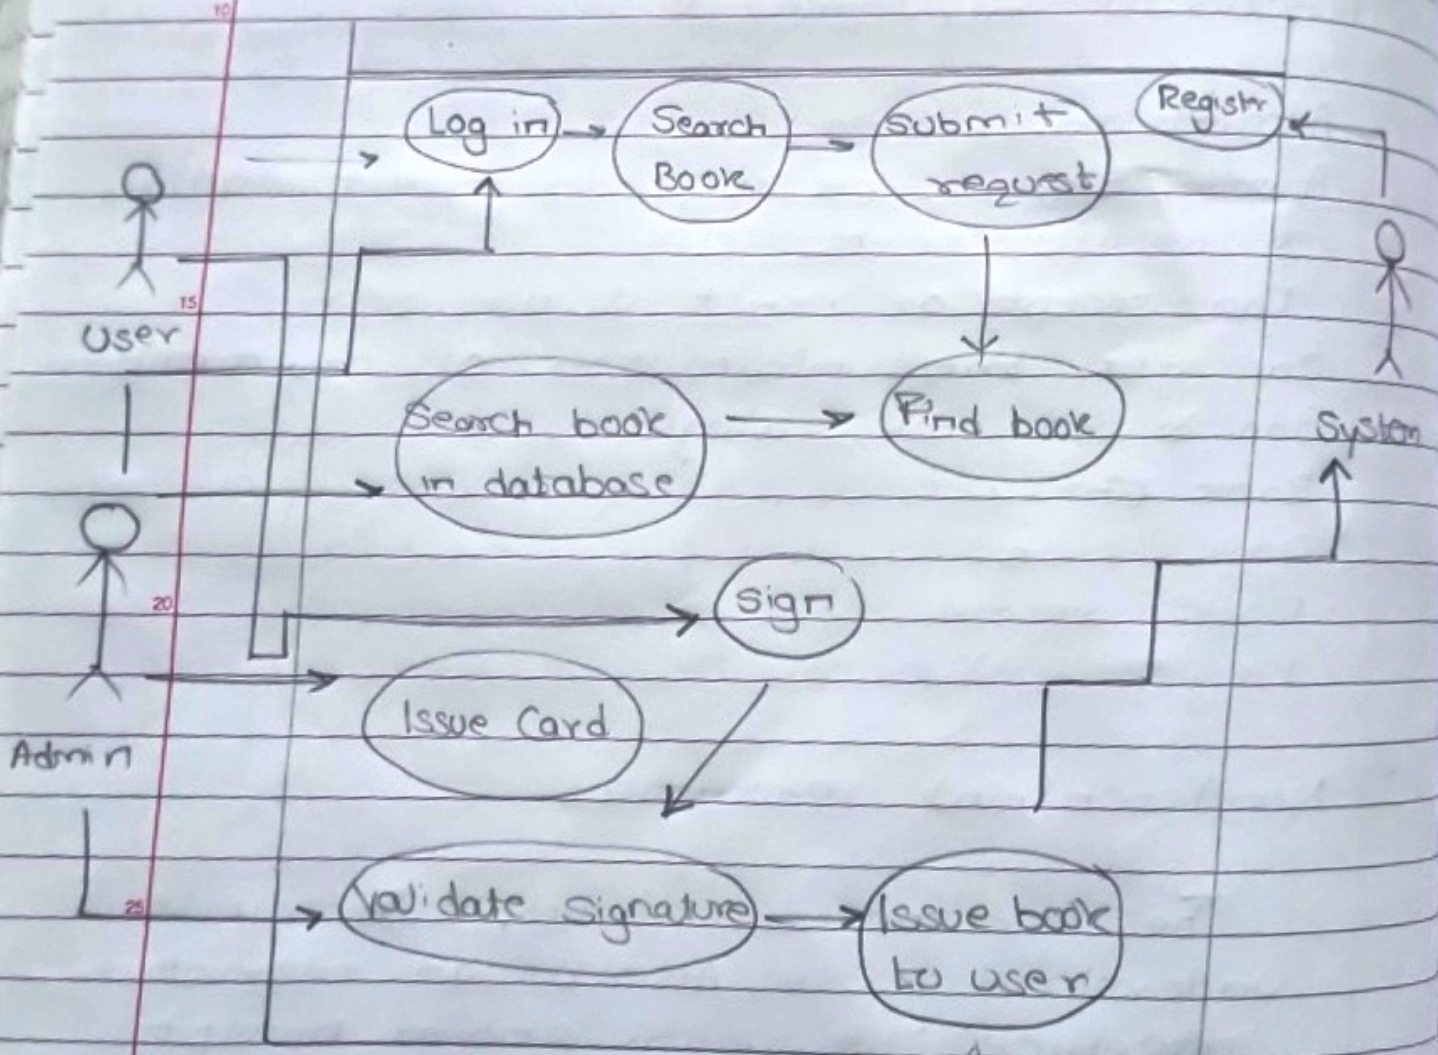 10
Log in
Search
Book
Submit
request
Registr
15
User
Search book
in database
Find book
System
20
Sign
Issue Card
Admin
25
Validate Signature
Issue book
to user